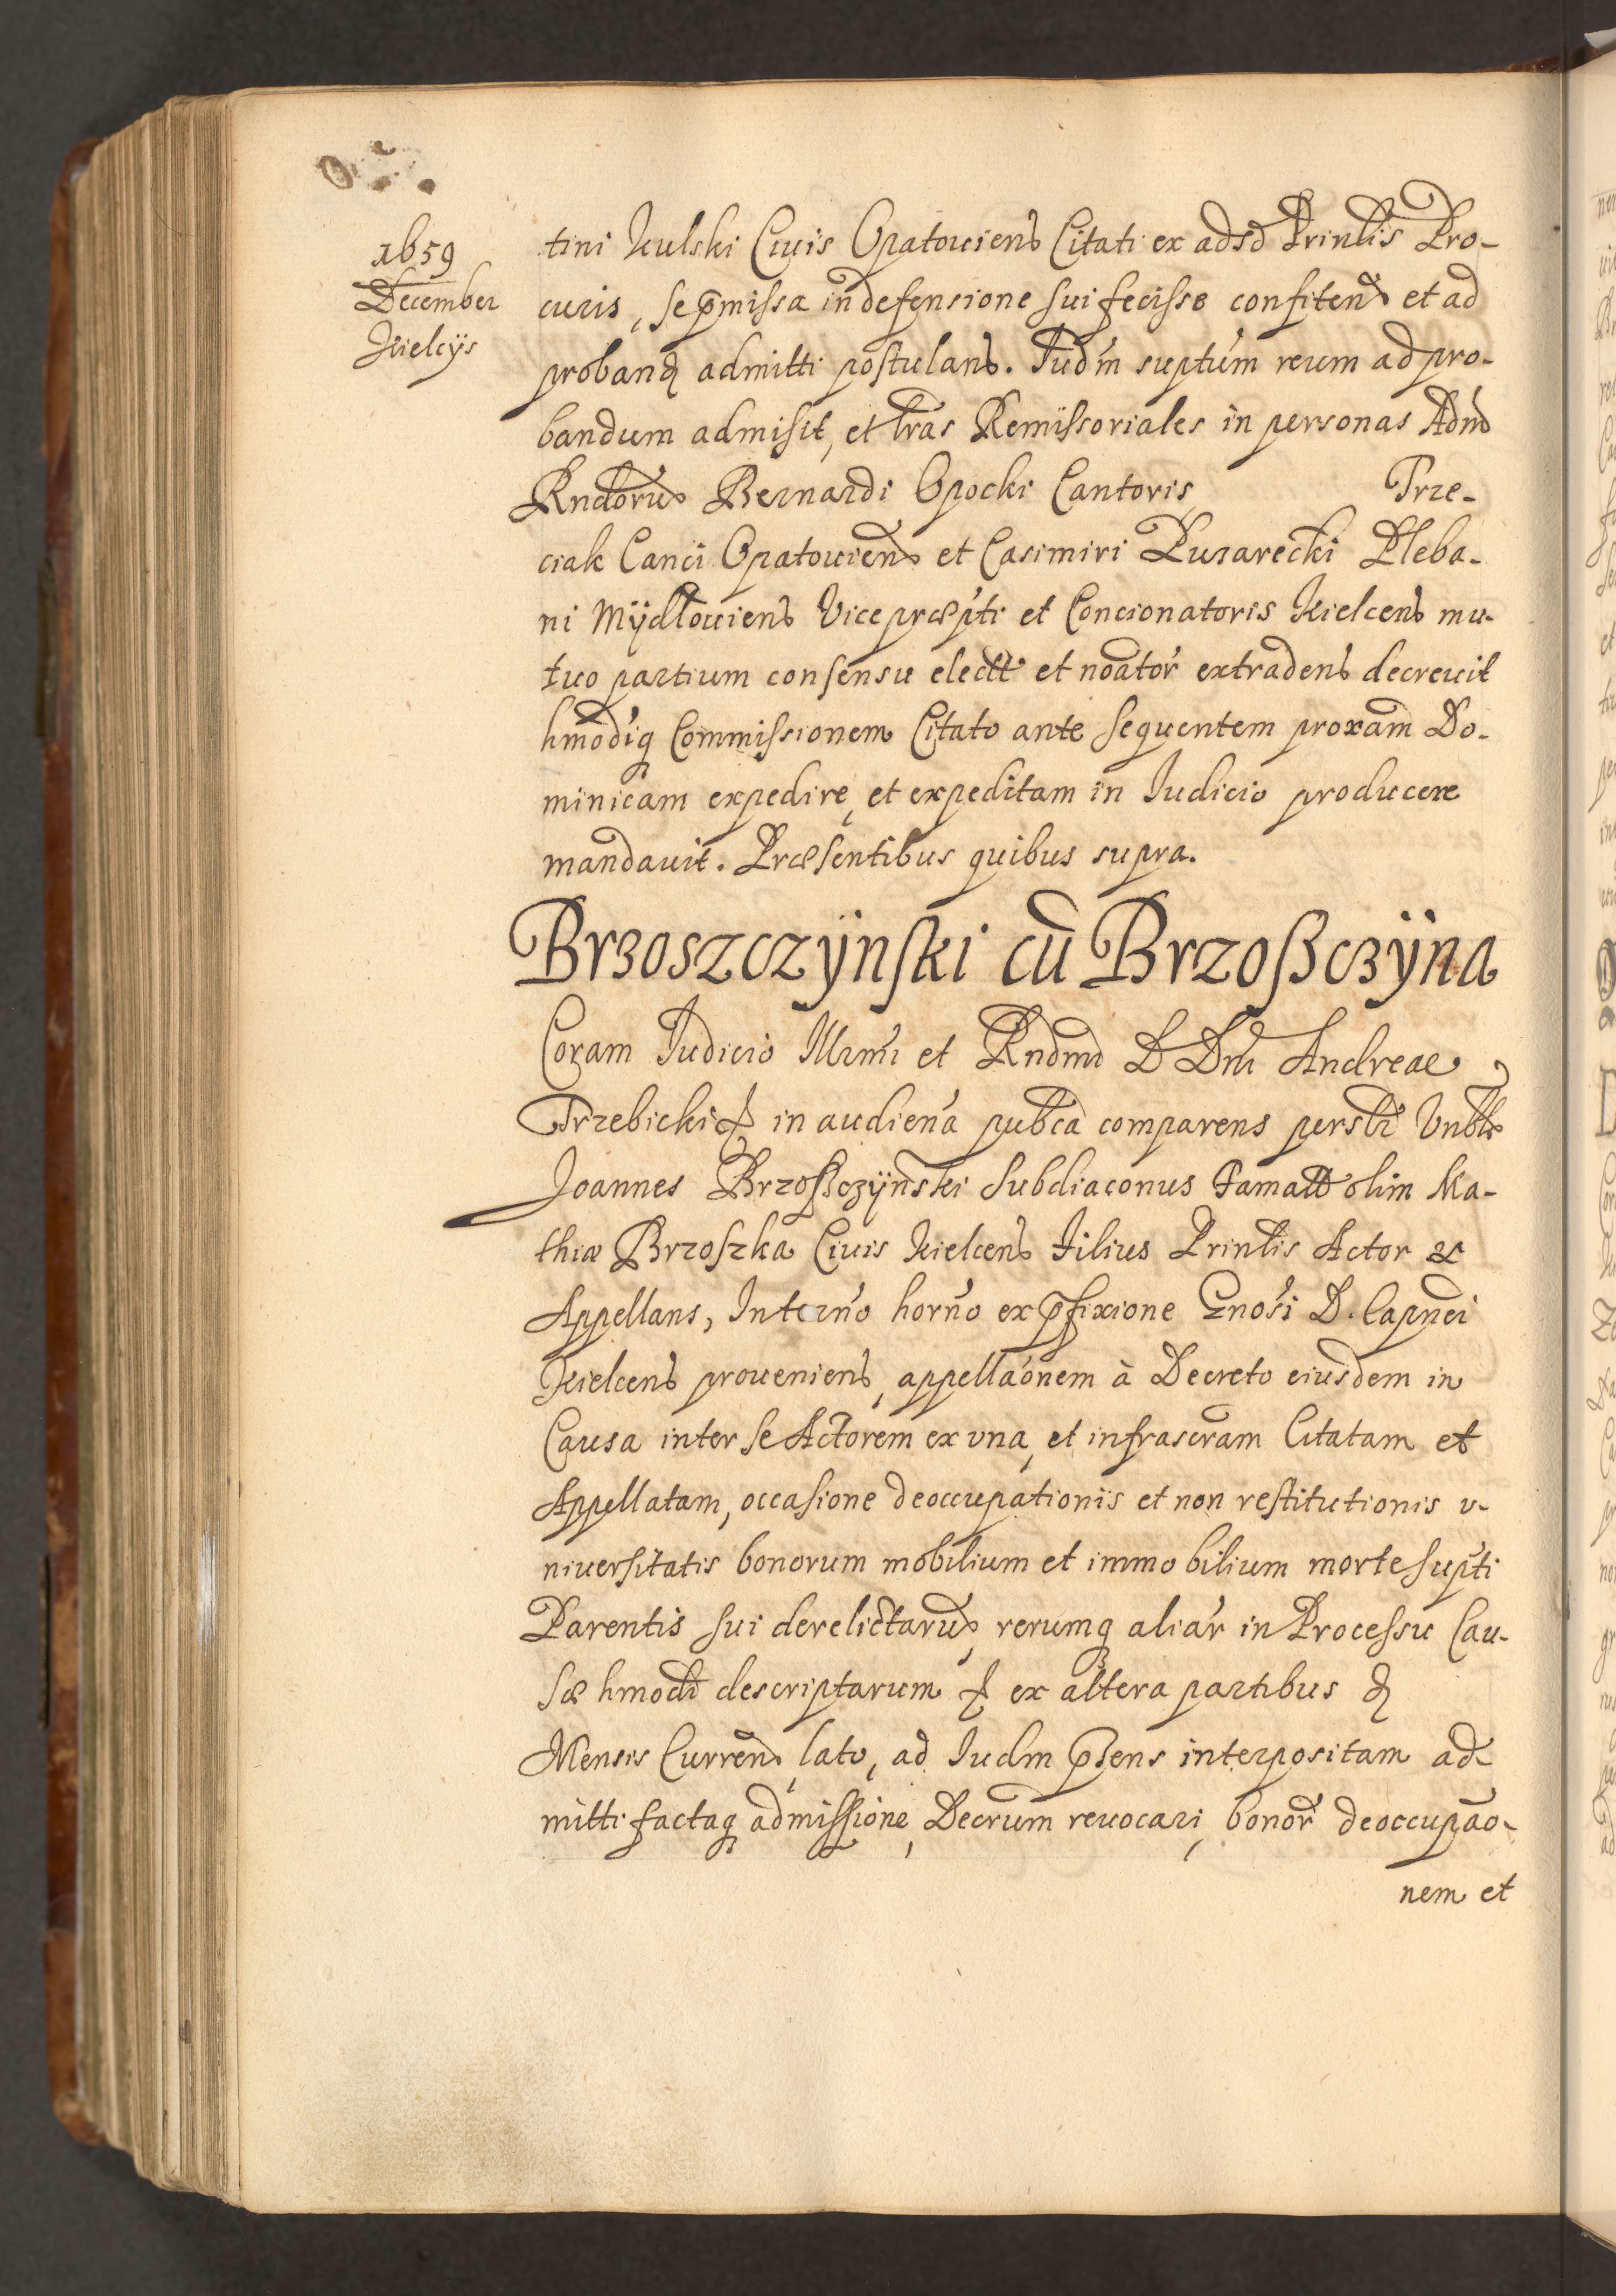 1659
December
Kielcÿs
tini Kulski Ciuis Opatouiens Citati ex adsd Prinlis Pro-
curis, se p̃missa in defensione sui fecisse confiten̄ et ad
proband admitti postulans. Iudm̃ suptum̃ reum ad pro-
bandum admisit, et lr̃as Remissoriales in personas Adm̃
Rndoru Bernardi Opocki Cantoris Trze-
ciak Canci Opatouien̄ et Casimiri Pusarecki Pleba-
ni Mÿdłouiens Vice præpti et Concionatoris Kielcens mu-
tuo partium consensu electt et noator̃ extradens decreuit
hmodiq Commissionem Citato ante sequentem proxam̃ Do-
minicam expedire, et expeditam in Iudicio producere
mandauit. Præsentibus quibus supra.
Brzoszczÿnski cū Brzoßczÿna
Coram Iudicio Illrmi et Rndm̃i D Dni Andreae
Trzebicki & in audien̄a pub̃ca comparens persłr Vnblis
Joannes Brzoßczÿnski Subdiaconus Famatt olim Ma-
thiæ Brzoszka Ciuis Kielcens Filius Prinlis Actor &
Appellans, In terño horño ex p̃fixione Gnosi D. Capnei
Kielcens proueniens, appellaõnem à Decreto eiusdem in
Causa inter se Actorem ex vna, et infrascram̃ Citatam et
Appellatam, occasione deoccupationis et non restitutionis v-
niuersitatis bonorum mobilium et immobilium morte supti
Parentis sui derelictaru, rerumq aliar̃ in Processu Cau-
sæ hmodi descriptarum & ex altera partibus d
Mensis Curren̄, lato, ad Iudm p̃sens interpositam ad-
mitti factaq admissione, Decrum̃ reuocari, bonor̃ deoccupaõ-
nem et